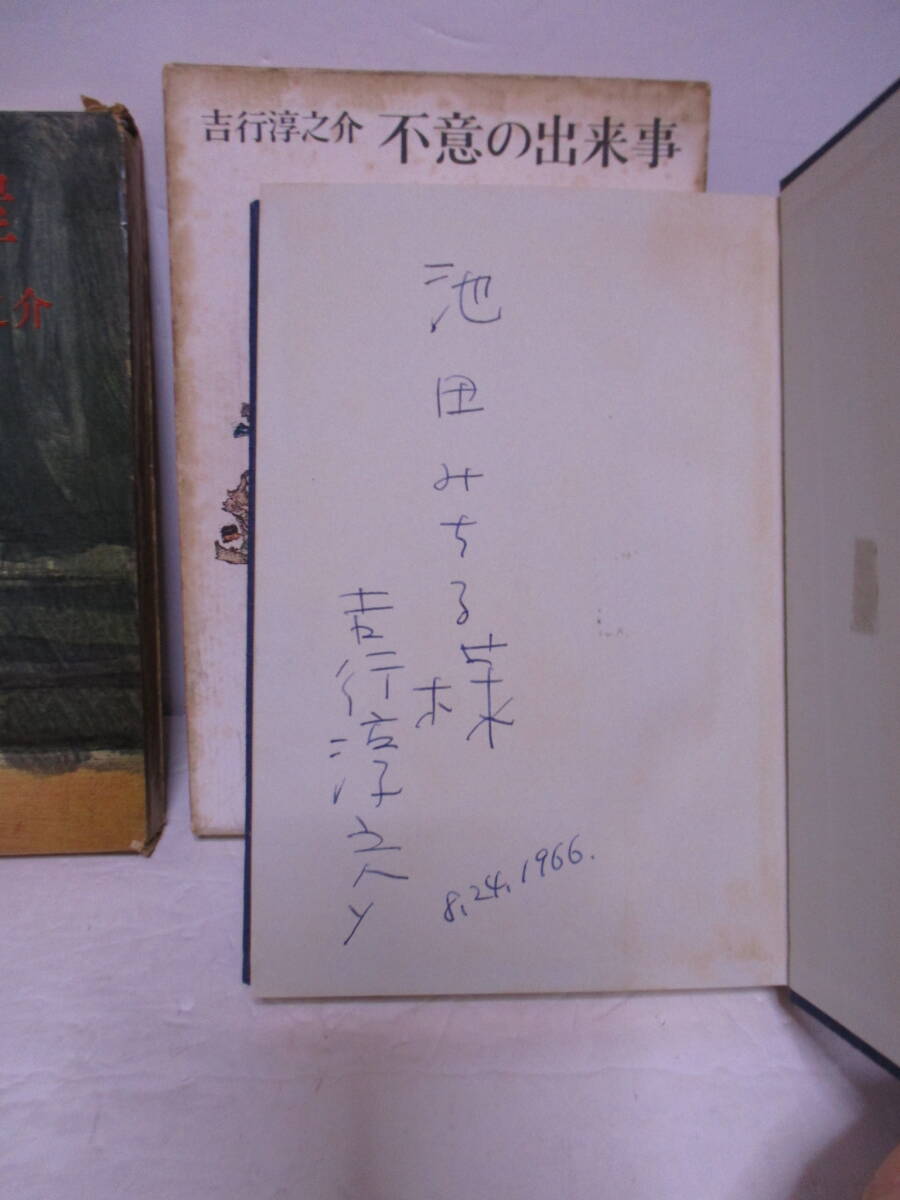 吉行淳之介 不意の出来事
池田みちる様
吉行淳之介
8,24,1966.
之介